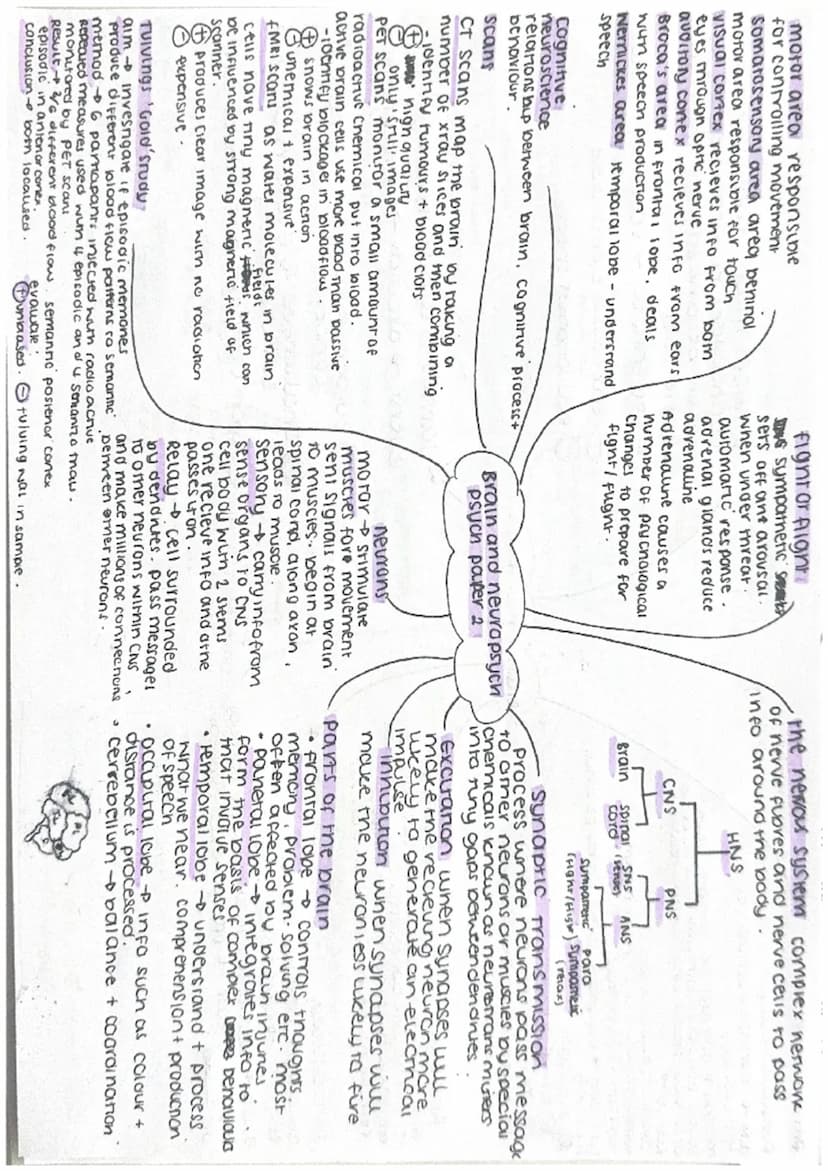 Brain and neuropsych
psych paper 2
motor area responsible
for controlling movement
somatosensory area area behind
motor area responsible for touch
visual cortex recieves info from both
eyes through optic nerve
auditory cortex recieves info from ears
Broca's area in frontal lobe. deals
with speech production
Wernickes area temporal lobe - understand
speech
Cognitive
neuroscience
relationship between brain, cognitive process +
behaviour.
scans
CT scans map the brain by taking a
number of xray slices and then combining
- identify tumours + blood clots
+ high quality
- only still images
PET scans monitor a small amount of
radioactive chemical put into blood.
active brain cells use more blood than passive
- identify blockages in bloodflow.
+ shows brain in action
- chemical + expensive
fMRI scans as water molecules in brain
cells have tiny magnetic fields which can
be influenced by strong magnetic field of
scanner.
+ produces clear image with no radiation
- expensive.
Tulvings 'Gold' study
aim → investigate if episodic memories
produce different blood flow patterns to semantic
method → 6 participants injected with radioactive
repeated measures used with 4 episodic and 4 semantic
monitored by PET scans
Result → 3/6 different blood flow. semantic posterior cortex
episodic in anterior cortex.
conclusion → both localised.
evaluate:
+ unbiased. - tulving was in sample.
fight or flight
sympathetic
sets off ANS arousal.
when under threat.
automatic response.
adrenal glands reduce
adrenaline
Adrenaline causes a
number of psychological
changes to prepare for
fight/flight.
neurons
motor → stimulate
muscles for movement
sent signals from brain
to muscles. begin at
spinal cord, along axon,
leads to muscle.
sensory → carry info from
sense organs to CNS
cell body with 2 stems
one recieve info and othe
passes it on.
Relay → cell surrounded
by dendrites. pass messages
to other neurons within CNS,
and make millions of connections
between other neurons.
the nervous system complex network
of nerve fibres and nerve cells to pass
info around the body.
HNS
CNS PNS
Brain spinal cord SNS ANS
sympathetic (fight/flight) para sympathetic (relax)
synaptic transmission
process where neurons pass message
to other neurons or muscles by special
chemicals known as neurotransmitters
into tiny gaps between dendrites.
Excitation when synapses will
make the recieving neuron more
likely to generate an electrical
impulse
inhibition when synapses will
make the neuron less likely to fire
parts of the brain
• frontal lobe → controls thoughts,
memory, problem-solving etc. most
often affected by brain injuries.
• Parietal lobe → integrates info to
form the basis of complex behaviours
that involve senses
• temporal lobe → understand + process
what we hear. comprehension + production
of speech
• occupital lobe → info such as colour +
distance is processed.
• cerrebellum → balance + coordination